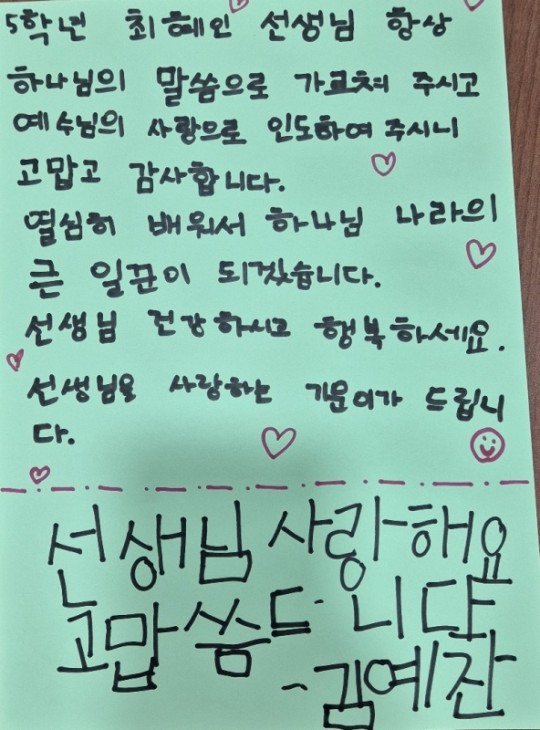 5학년 최혜인 선생님 항상
하나님의 말씀으로 가르쳐 주시고
예수님의 사랑으로 인도하여 주시니
고맙고 감사합니다.
열심히 배워서 하나님 나라의
큰 일꾼이 되겠습니다.
선생님 건강하시고 행복하세요.
선생님을 사랑하는 가운이가 드립니
다.
선생님 사랑해요
고맙씀드니댜
~김예잔